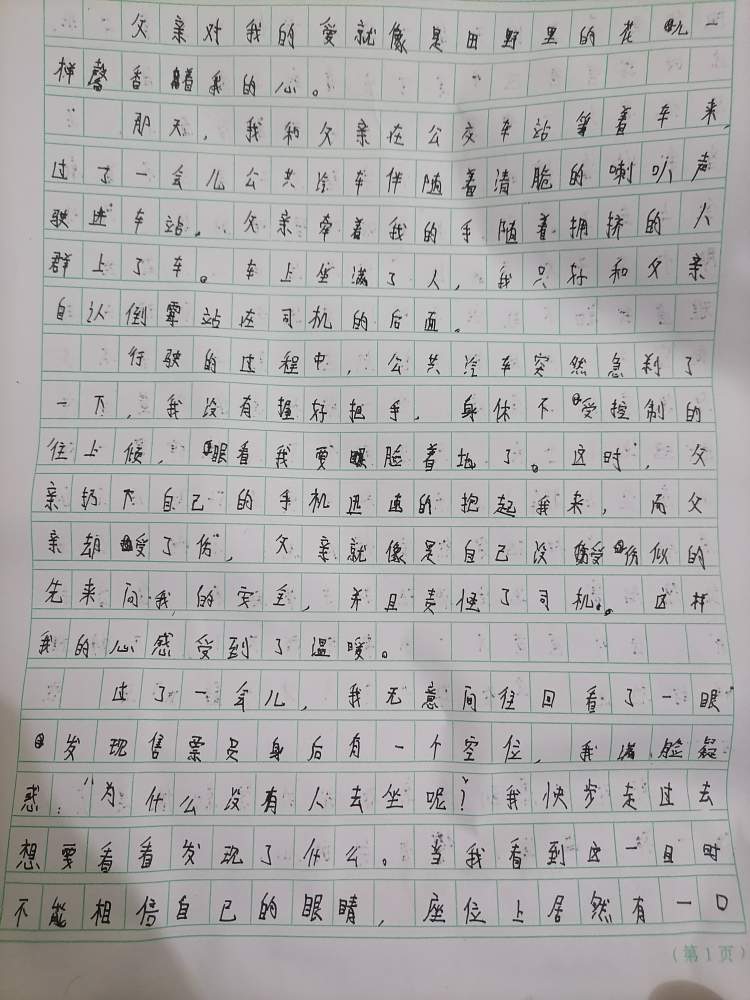 父亲对我的爱就像是田野里的花儿一
样馨香着我的心。
那天，我和父亲在公交车站等着车来，
过了一会儿公共汽车伴随着清脆的喇叭声
驶进车站。父亲牵着我的手随着拥挤的人
群上了车。车上坐满了人，我只好和父亲
自认倒霉站在司机的后面。
行驶的过程中，公共汽车突然急刹了
一下，我没有握好把手，身体不受控制的
往上倾，眼看我要脸着地了。这时，父
亲扔下自己的手机迅速的抱起我来，而父
亲却受了伤，父亲就像是自己没受伤似的
先来问我的安全，并且责怪了司机。这样
我的心感受到了温暖。
过了一会儿，我无意间往回看了一眼
发现售票员身后有一个空位，我满脸疑
惑：“为什么没有人去坐呢？”我快步走过去
想要看看发现了什么。当我看到这一目时
不能相信自己的眼睛，座位上居然有一口
（第1页）